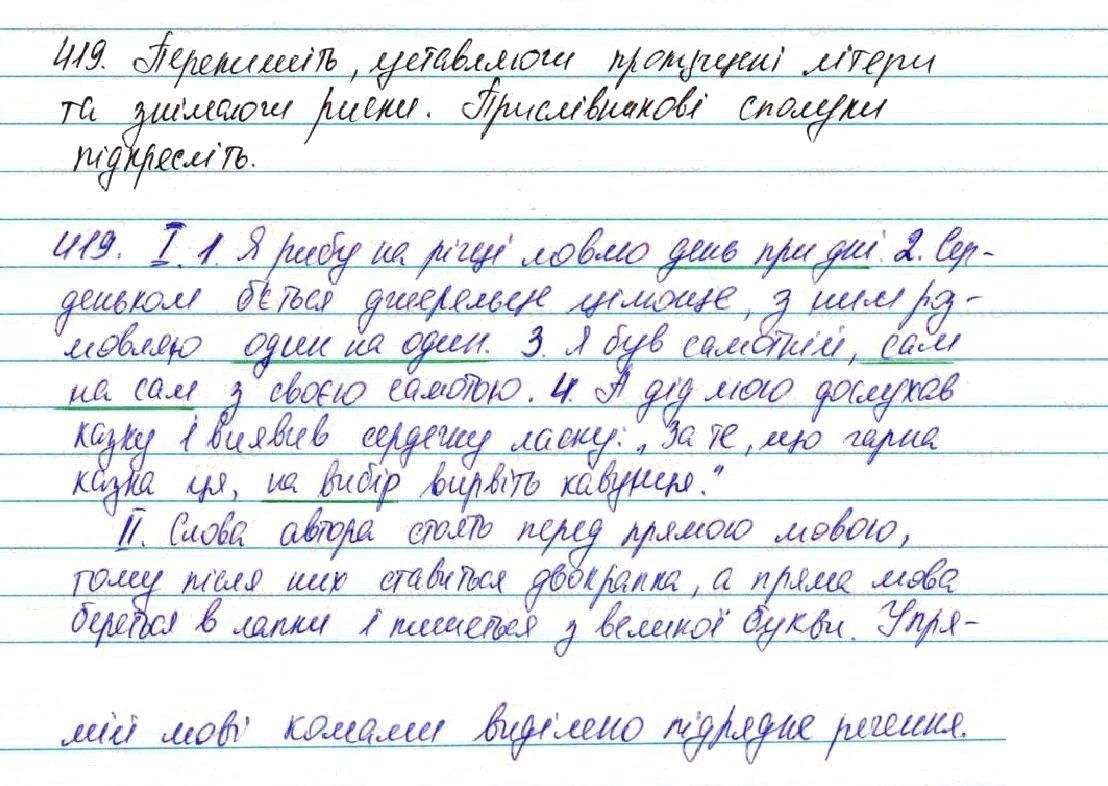 419. Перепишіть, уставляючи пропущені літери
та знімаючи риски. Прислівникові сполуки
підкресліть.
419. I. 1. Я рибу на річці ловлю день при дні. 2. Сер-
деньком б'ється джерельце цілюще, з ним роз-
мовляю один на один. 3. Я був самотній, сам
на сам з своєю самотою. 4. А дід мою дослухав
казку і виявив сердечну ласку: „За те, що гарна
казка ця, на вибір вирвіть кавунця."
II. Слова автора стоять перед прямою мовою,
тому після них ставиться двокрапка, а пряма мова
береться в лапки і пишеться з великої букви. У пря-
мій мові комами виділено підрядне речення.